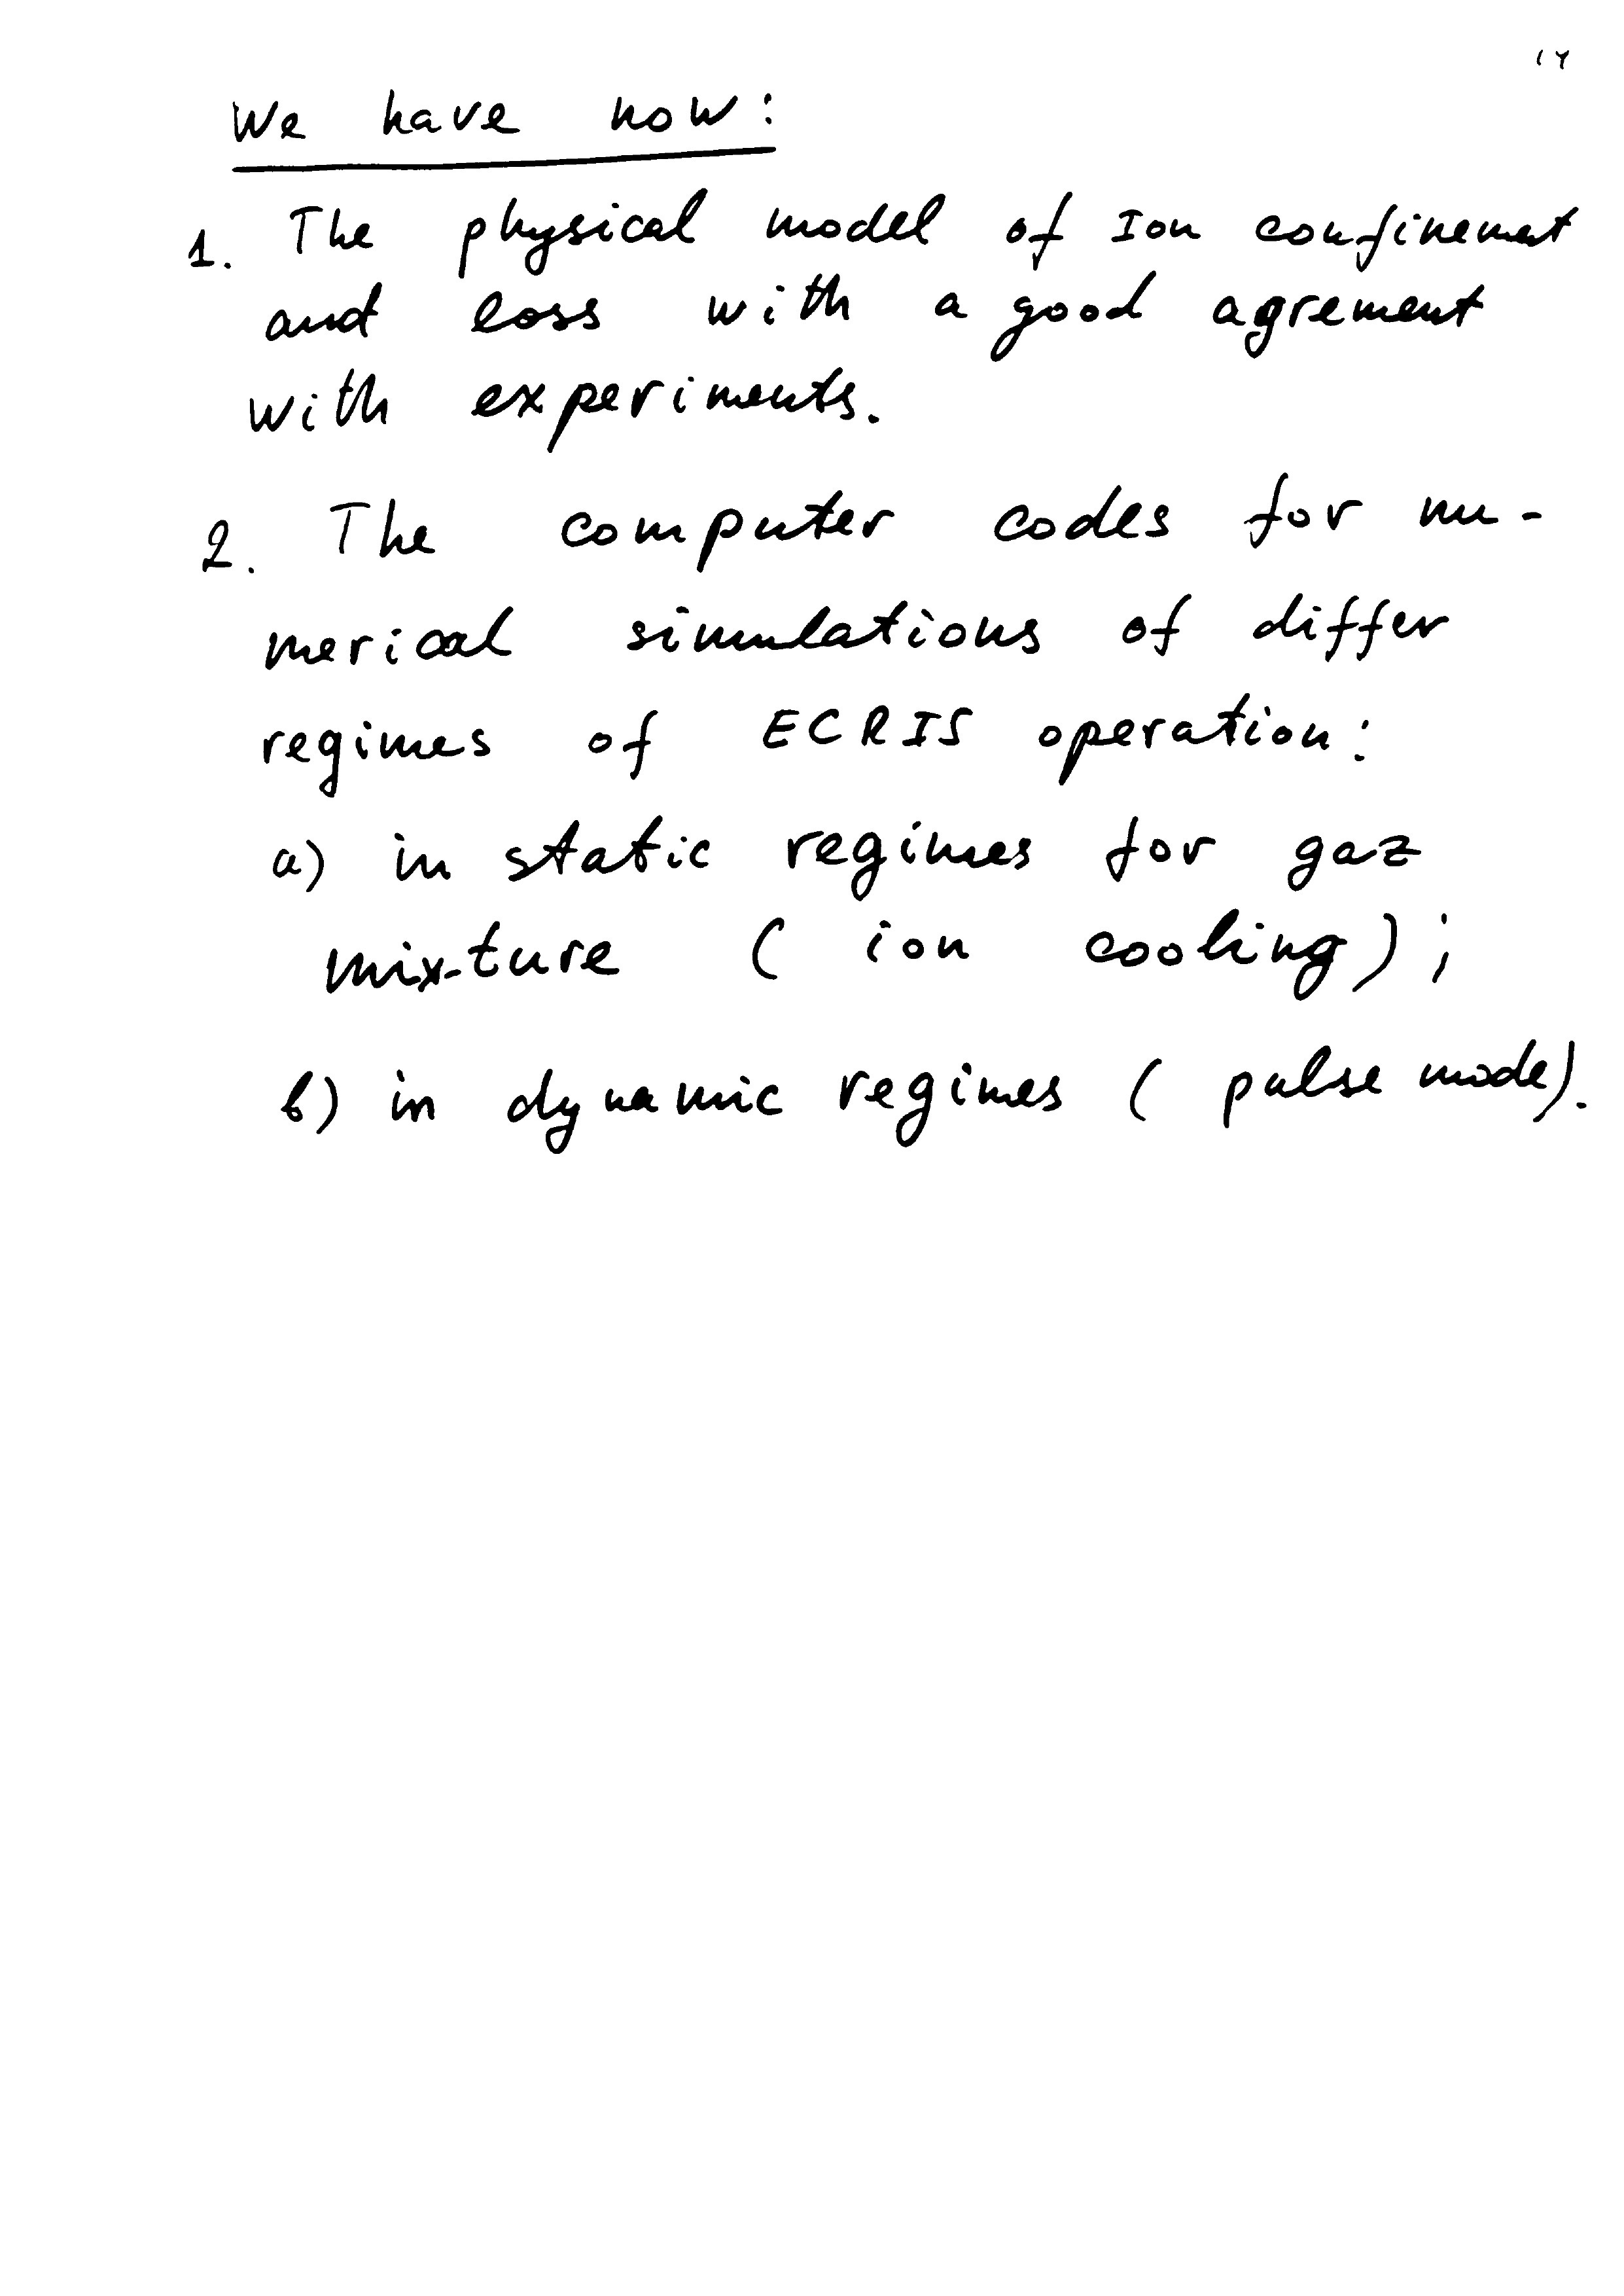 14
We have now:
1. The physical model of Ion confinemat
and loss with a good agrement
with experiments.
2. The computer codes for nu-
merical simulations of differ
regimes of ECRIS operation:
a) in static regimes for gaz
mixture ( ion cooling) ;
b) in dynamic regimes ( pulse mode).